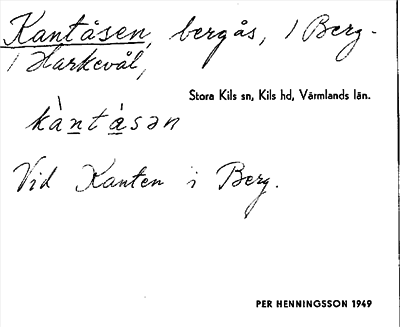 Kantåsen, bergås, i Berg.
i Harkevål,
Stora Kils sn, Kils hd, Värmlands län.
kàntåsən
Vid Kanten i Berg.
PER HENNINGSSON 1949